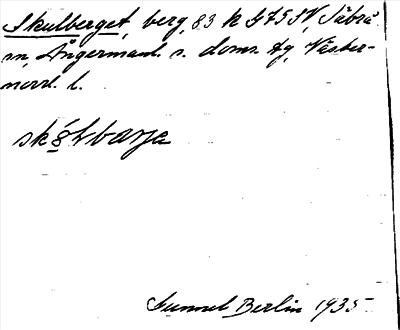 Skulberget, berg, 83 k G75 SV, Säbrå
sn, Ångermanl. s. doms. dg, Väster-
norrl. l.
Gunnel Berlin 1935